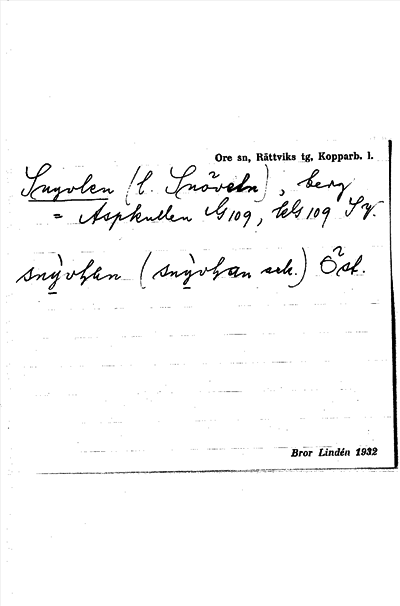 Ore sn, Rättviks tg, Kopparb. l.
Snyvlen (l. Snöveln), berg
= Aspkullen G109, kG109 SV.
snỳvḷan (snỳvḷan sek.) Öst.
Bror Lindén 1932